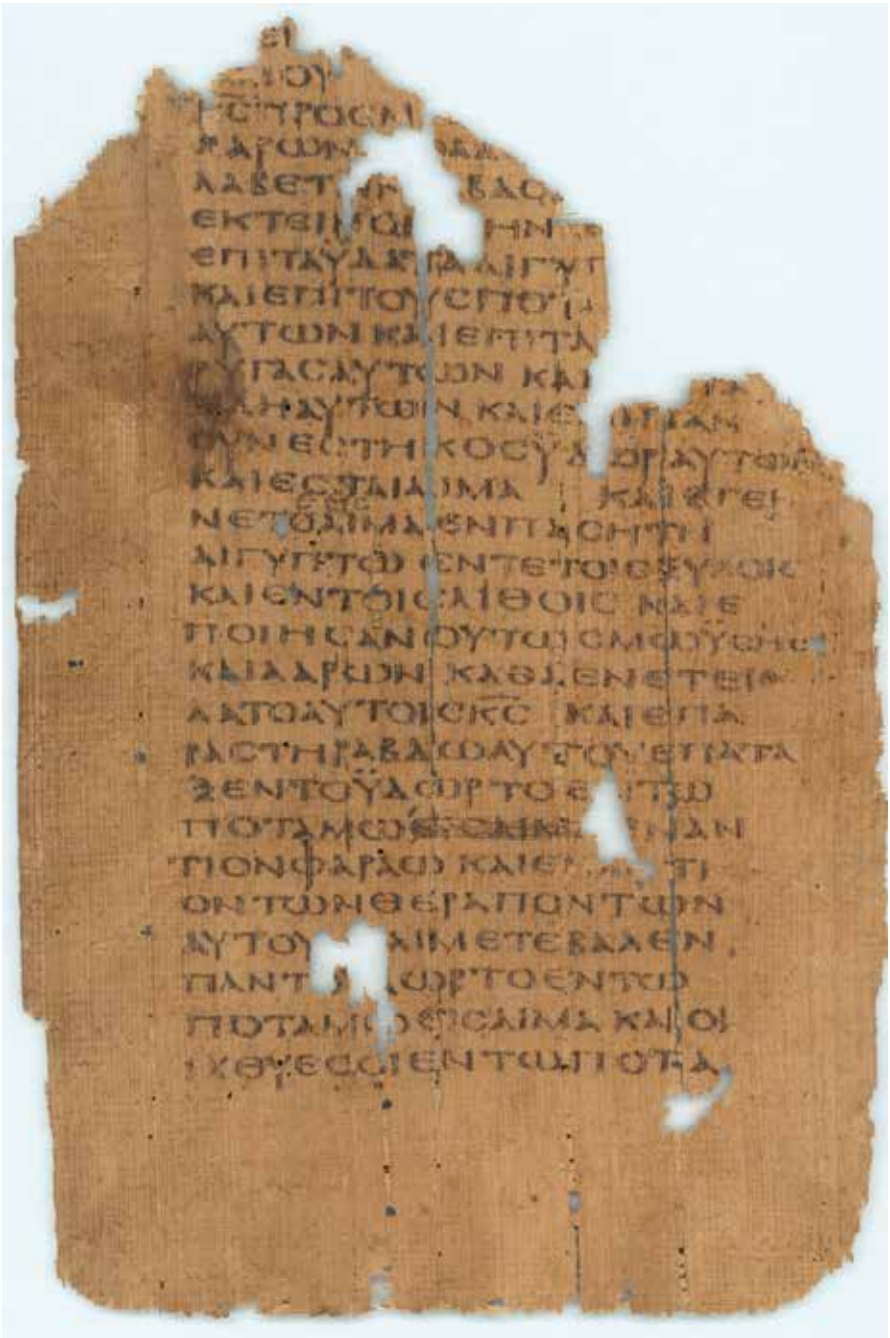 ΕΙ
ΙΟΥ
Κ̅Ϲ̅ΠΡΟϹΜ
ΑΑΡΩΝ
ΛΑΒΕΤΗΝ ΒΑΔ
ΕΚΤΕΙΝΟΝ ΗΝ
ΕΠΙΤΑΫΔΑΤΑΑΙΓΥΠ
ΚΑΙΕΠΙΤΟΥϹΠΟΤΑ
ΑΥΤΩΝΚΑΙΕΠΙΤΑ
ΡΥΓΑϹΑΥΤΩΝ ΚΑΙ ΤΑ
ΕΛΗΑΥΤΩΝ ΚΑΙΕ ΠΙΠΑΝ
ϹΥΝΕϹΤΗΚΟϹΫΔΩΡΑΥΤΩΝ
ΚΑΙΕϹΤΑΙΑΙΜΑ ΚΑΙΕΓΕΙ
ΝΕΤΟΑΙΜΑΕΝΠΑϹΗΤΗ
ΑΙΓΥΠΤΩ ΕΝΤΕΤΟΙϹΞΥΛΟΙϹ
ΚΑΙΕΝΤΟΙϹΛΙΘΟΙϹ ΚΑΙΕ
ΠΟΙΗϹΑΝΟΥΤΩϹΜΩΫϹΗϹ
ΚΑΙΑΑΡΩΝ ΚΑΘΑΕΝΕΤΕΙ
ΛΑΤΟΑΥΤΟΙϹΚ̅Ϲ̅ ΚΑΙΕΠΑ
ΡΑϹΤΗΡΑΒΔΩΑΥΤΟΥΕΠΑΤΑ
ΞΕΝΤΟΫΔΩΡΤΟΕΝΤΩ
ΠΟΤΑΜΩ ΕΝΑΝ
ΤΙΟΝΦΑΡΑΩ ΚΑΙΕΝΑΝΤΙ
ΟΝΤΩΝΘΕΡΑΠΟΝΤΩΝ
ΑΥΤΟΥ ΚΑΙΜΕΤΕΒΑΛΕΝ
ΠΑΝΤΟ ΔΩΡΤΟΕΝΤΩ
ΠΟΤΑΜΩΕΙϹΑΙΜΑ ΚΑΙΟΙ
ΙΧΘΥΕϹΟΙΕΝΤΩΠΟΤΑ